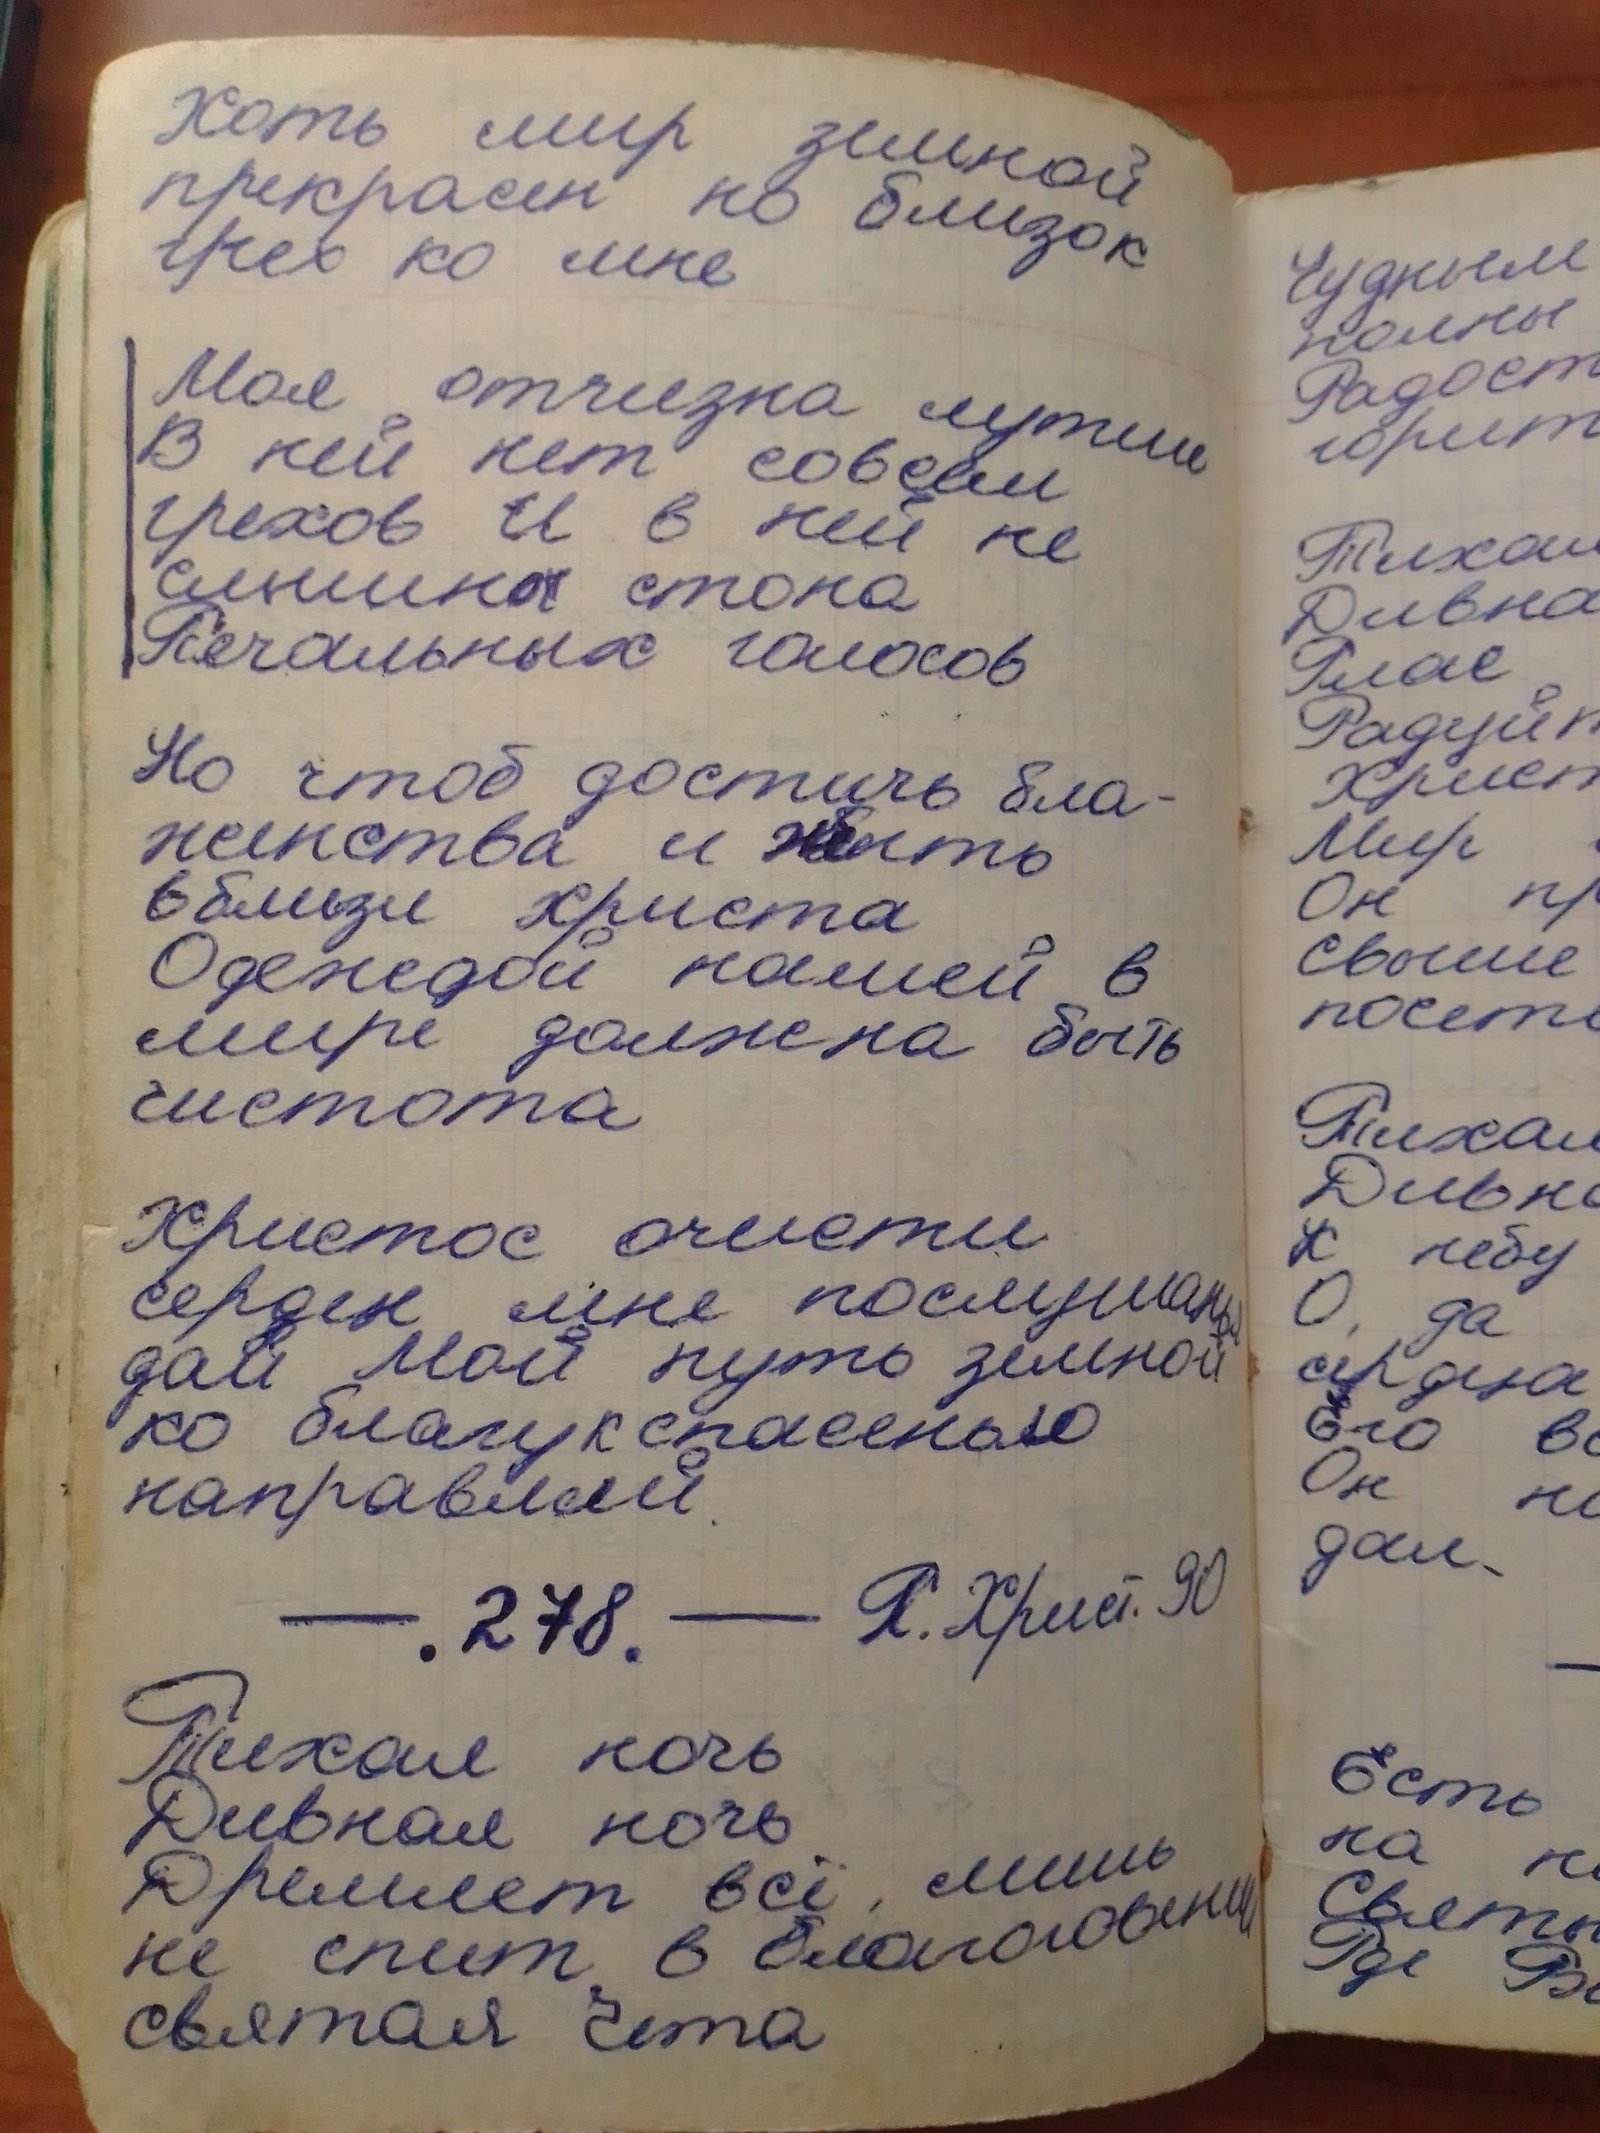 Хоть мир земной
прекрасен но близок
грех ко мне
Моя отчизна лутше
В ней нет совсем
грехов И в ней не
слышны стона
Печальных голосов
Но чтоб достичь бла-
женства и жить
вблизи христа
Одеждой нашей в
мире должна быть
чистота
Христос очисти
серден мне послушанья
дай Мой путь земной
ко благу к спасенью
направляй.
—.278.— Р. Христ. 90
Тихая ночь
Дивная ночь
Дремлет всё, лишь
не спит в благоговении
святая Чета
Чудным
полны
Радост
горит
Тихая
Дивна
Глас
Радуйт
Христ
Мир
Он пр
свыше
посети
Тихая
Дивна
К небу
О, да
сердца
Его вс
Он на
дал.
Есть
на не
Святы
Где